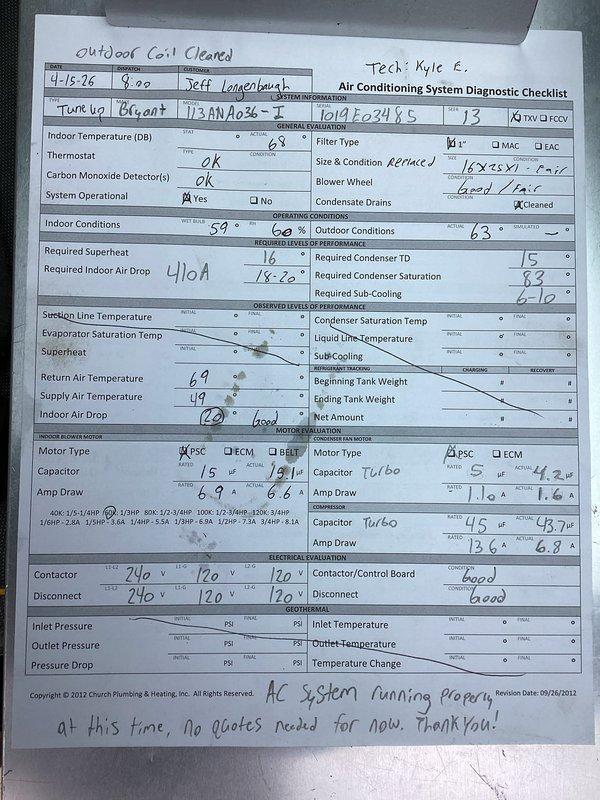 Outdoor Coil Cleaned
Tech: Kyle E.
DATE 4-15-26 DISPATCH 8:00 CUSTOMER Jeff Longenbaugh
Air Conditioning System Diagnostic Checklist
SYSTEM INFORMATION
TYPE Tune up MAKE Bryant MODEL 113ANA036-I SERIAL 1019E03485 SEER 13 TXV FCCV
GENERAL EVALUATION
Indoor Temperature (DB) STAT ° ACTUAL 68 °
Filter Type 1" MAC EAC
Thermostat TYPE OK CONDITION
Size & Condition Replaced SIZE 16x25x1 - CONDITION Fair
Carbon Monoxide Detector(s) OK
Blower Wheel CONDITION Good / Fair
System Operational Yes No
Condensate Drains CONDITION Cleaned
OPERATING CONDITIONS
Indoor Conditions WET BULB 59 ° RH 60 %
Outdoor Conditions ACTUAL 63 ° SIMULATED — °
REQUIRED LEVELS OF PERFORMANCE
Required Superheat 16 °
Required Condenser TD 15 °
Required Indoor Air Drop 410A 18-20 °
Required Condenser Saturation 83 °
Required Sub-Cooling 6-10 °
OBSERVED LEVELS OF PERFORMANCE
Suction Line Temperature INITIAL ° FINAL °
Condenser Saturation Temp INITIAL ° FINAL °
Evaporator Saturation Temp INITIAL ° FINAL °
Liquid Line Temperature INITIAL ° FINAL °
Superheat INITIAL ° FINAL °
Sub-Cooling INITIAL ° FINAL °
REFRIGERANT TRACKING CHARGING RECOVERY
Return Air Temperature 69 °
Beginning Tank Weight # #
Supply Air Temperature 49 °
Ending Tank Weight # #
Indoor Air Drop 20 ° Good °
Net Amount # #
MOTOR EVALUATION
INDOOR BLOWER MOTOR
CONDENSER FAN MOTOR
Motor Type PSC ECM BELT
Motor Type PSC ECM
Capacitor RATED 15 µF ACTUAL 15.1 µF
Capacitor Turbo RATED 5 µF ACTUAL 4.2 µF
Amp Draw RATED 6.9 A ACTUAL 6.6 A
Amp Draw RATED 1.10 A ACTUAL 1.6 A
COMPRESSOR
40K: 1/5-1/4HP 60K: 1/3HP 80K: 1/2-3/4HP 100K: 1/2-3/4HP 120K: 3/4HP
1/6HP - 2.8A 1/5HP - 3.6A 1/4HP - 5.5A 1/3HP - 6.9A 1/2HP - 7.3A 3/4HP - 8.1A
Capacitor Turbo RATED 45 µF ACTUAL 43.7 µF
Amp Draw RATED 13.6 A ACTUAL 6.8 A
ELECTRICAL EVALUATION
Contactor L1-L2 240 V L1-G 120 V L2-G 120 V
Contactor/Control Board CONDITION Good
Disconnect L1-L2 240 V L1-G 120 V L2-G 120 V
Disconnect CONDITION Good
GEOTHERMAL
Inlet Pressure INITIAL PSI FINAL PSI
Inlet Temperature INITIAL ° FINAL °
Outlet Pressure INITIAL PSI FINAL PSI
Outlet Temperature INITIAL ° FINAL °
Pressure Drop INITIAL PSI FINAL PSI
Temperature Change INITIAL ° FINAL °
Copyright © 2012 Church Plumbing & Heating, Inc. All Rights Reserved.
Revision Date: 09/26/2012
AC System running properly
at this time, no quotes needed for now. Thank You!